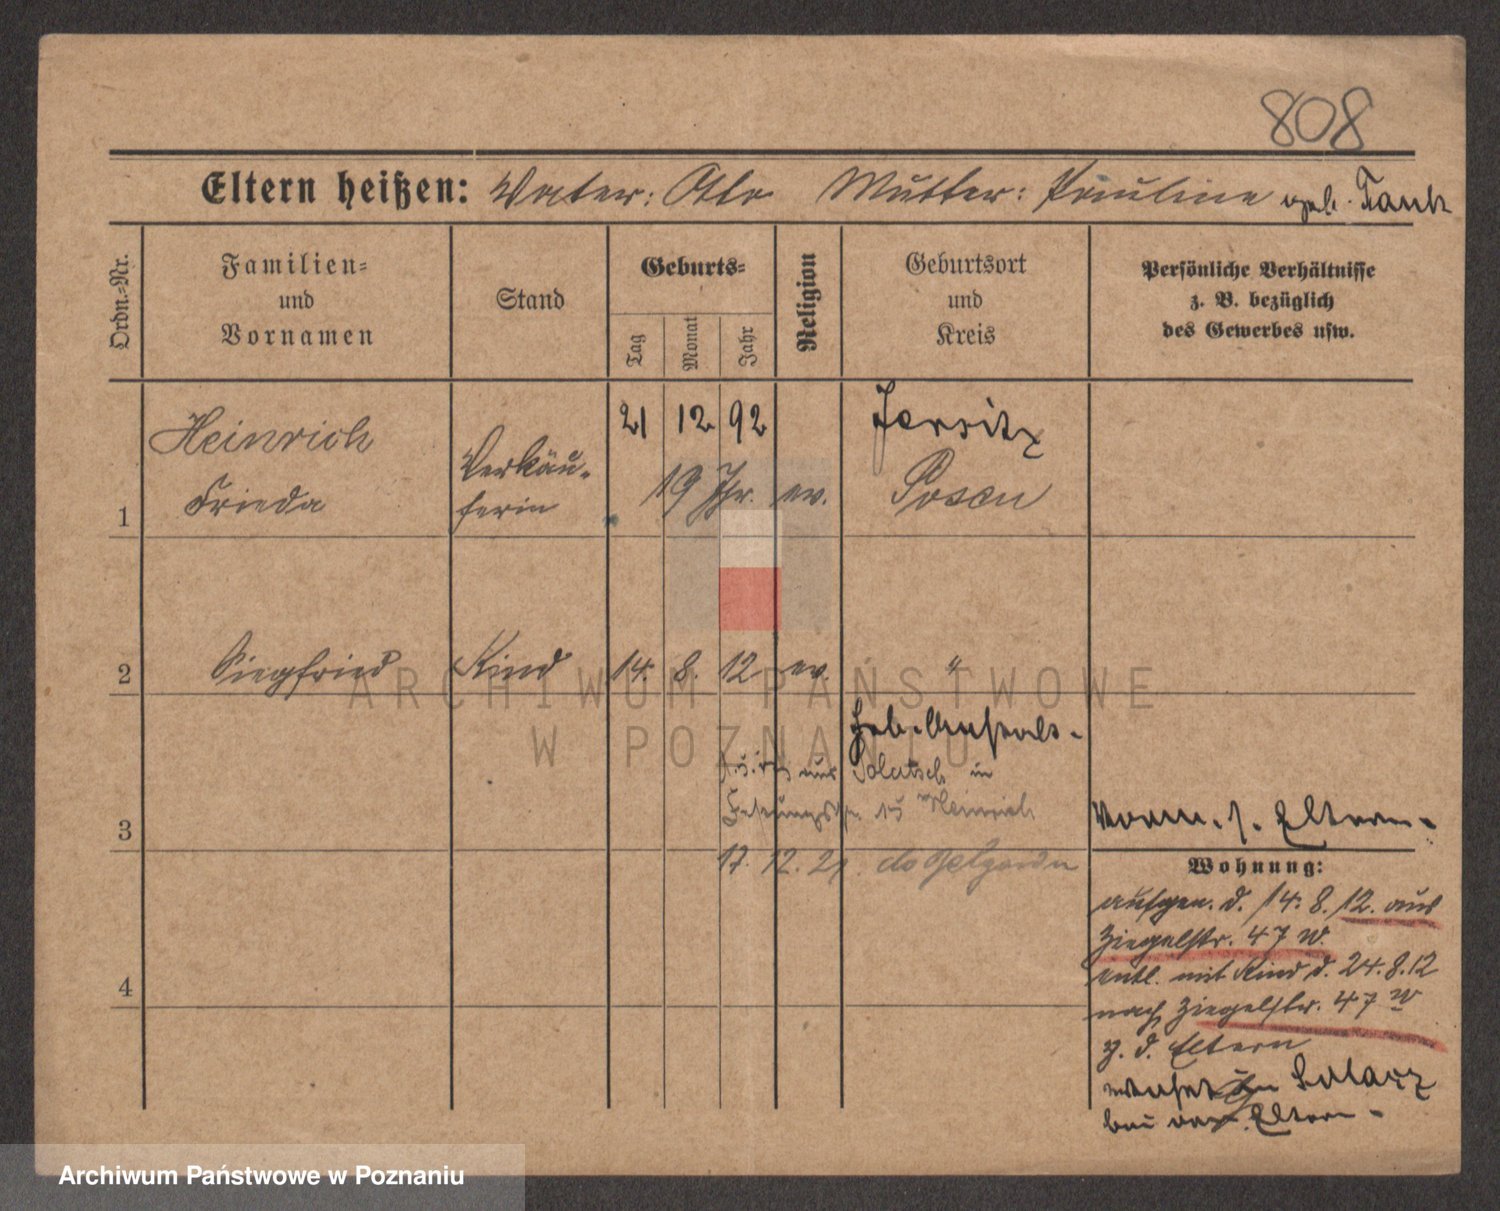 808
Eltern heißen: Vater: Otto Mutter: Pauline geb. Tauk
Ordn.=Nr.
Familien=
und
Vornamen
Stand
Geburts=
Tag
Monat
Jahr
Religion
Geburtsort
und
Kreis
Persönliche Verhältnisse
z. B. bezüglich
des Gewerbes usw.
1
Heinrich
Frieda
Verkäu-
ferin
21 12 92
19 Jhr.
ev.
Jersitz
Posen
2
Siegfried
Kind
14. 8. 12
ev.
"
Geb. Anstalt-
aus Solatsch in
Heinrich
3
17. 12. 21.
Vorm. s. Eltern.
Wohnung:
aufgen. d. 14. 8. 12. aus
Ziegelstr. 47 W.
entl. mit Kind d. 24. 8. 12
nach Ziegelstr. 47 W
z. d. Eltern
wohnt in Solacz
bei den Eltern.
4
ARCHIWUM PAŃSTWOWE
W POZNANIU
Archiwum Państwowe w Poznaniu